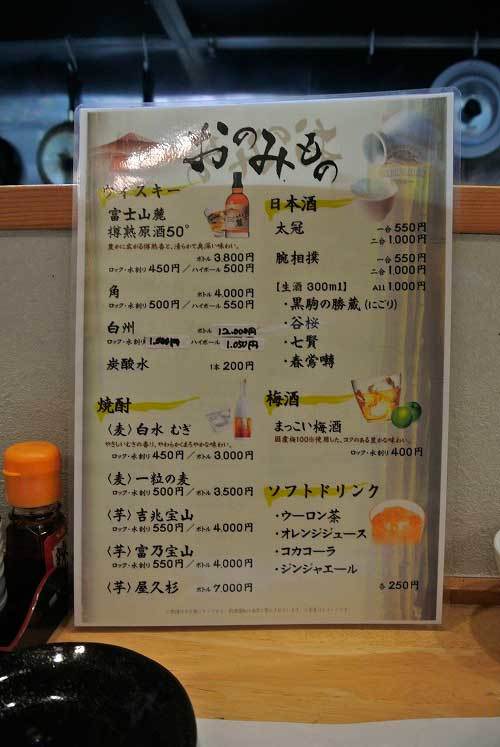 おのみもの
ウイスキー
富士山麓
樽熟原酒50°
豊かに広がる樽熟香と、清らかで奥深い味わい。
ボトル 3,800円
ロック・水割り 450円 / ハイボール 500円
角 ボトル 4,000円
ロック・水割り 500円 / ハイボール 550円
白州 ボトル 12,000円
ロック・水割り 1,000円 / ハイボール 1,050円
炭酸水 1本 200円
焼酎
〈麦〉白水 むぎ
やさしいむぎの香り、やわらかくまろやかな味わい。
ロック・水割り 450円 / ボトル 3,000円
〈麦〉一粒の麦
ロック・水割り 500円 / ボトル 3,500円
〈芋〉吉兆宝山
ロック・水割り 550円 / ボトル 4,000円
〈芋〉富乃宝山
ロック・水割り 550円 / ボトル 4,000円
〈芋〉屋久杉 ボトル 7,000円
日本酒
太冠 一合 550円
二合 1,000円
腕相撲 一合 550円
二合 1,000円
【生酒 300ml】 All 1,000円
・黒駒の勝蔵(にごり)
・谷桜
・七賢
・春鶯囀
梅酒
まっこい梅酒
国産梅100%使用した、コクのある豊かな味わい。
ロック・水割り 400円
ソフトドリンク
・ウーロン茶
・オレンジジュース
・コカコーラ
・ジンジャエール
各 250円